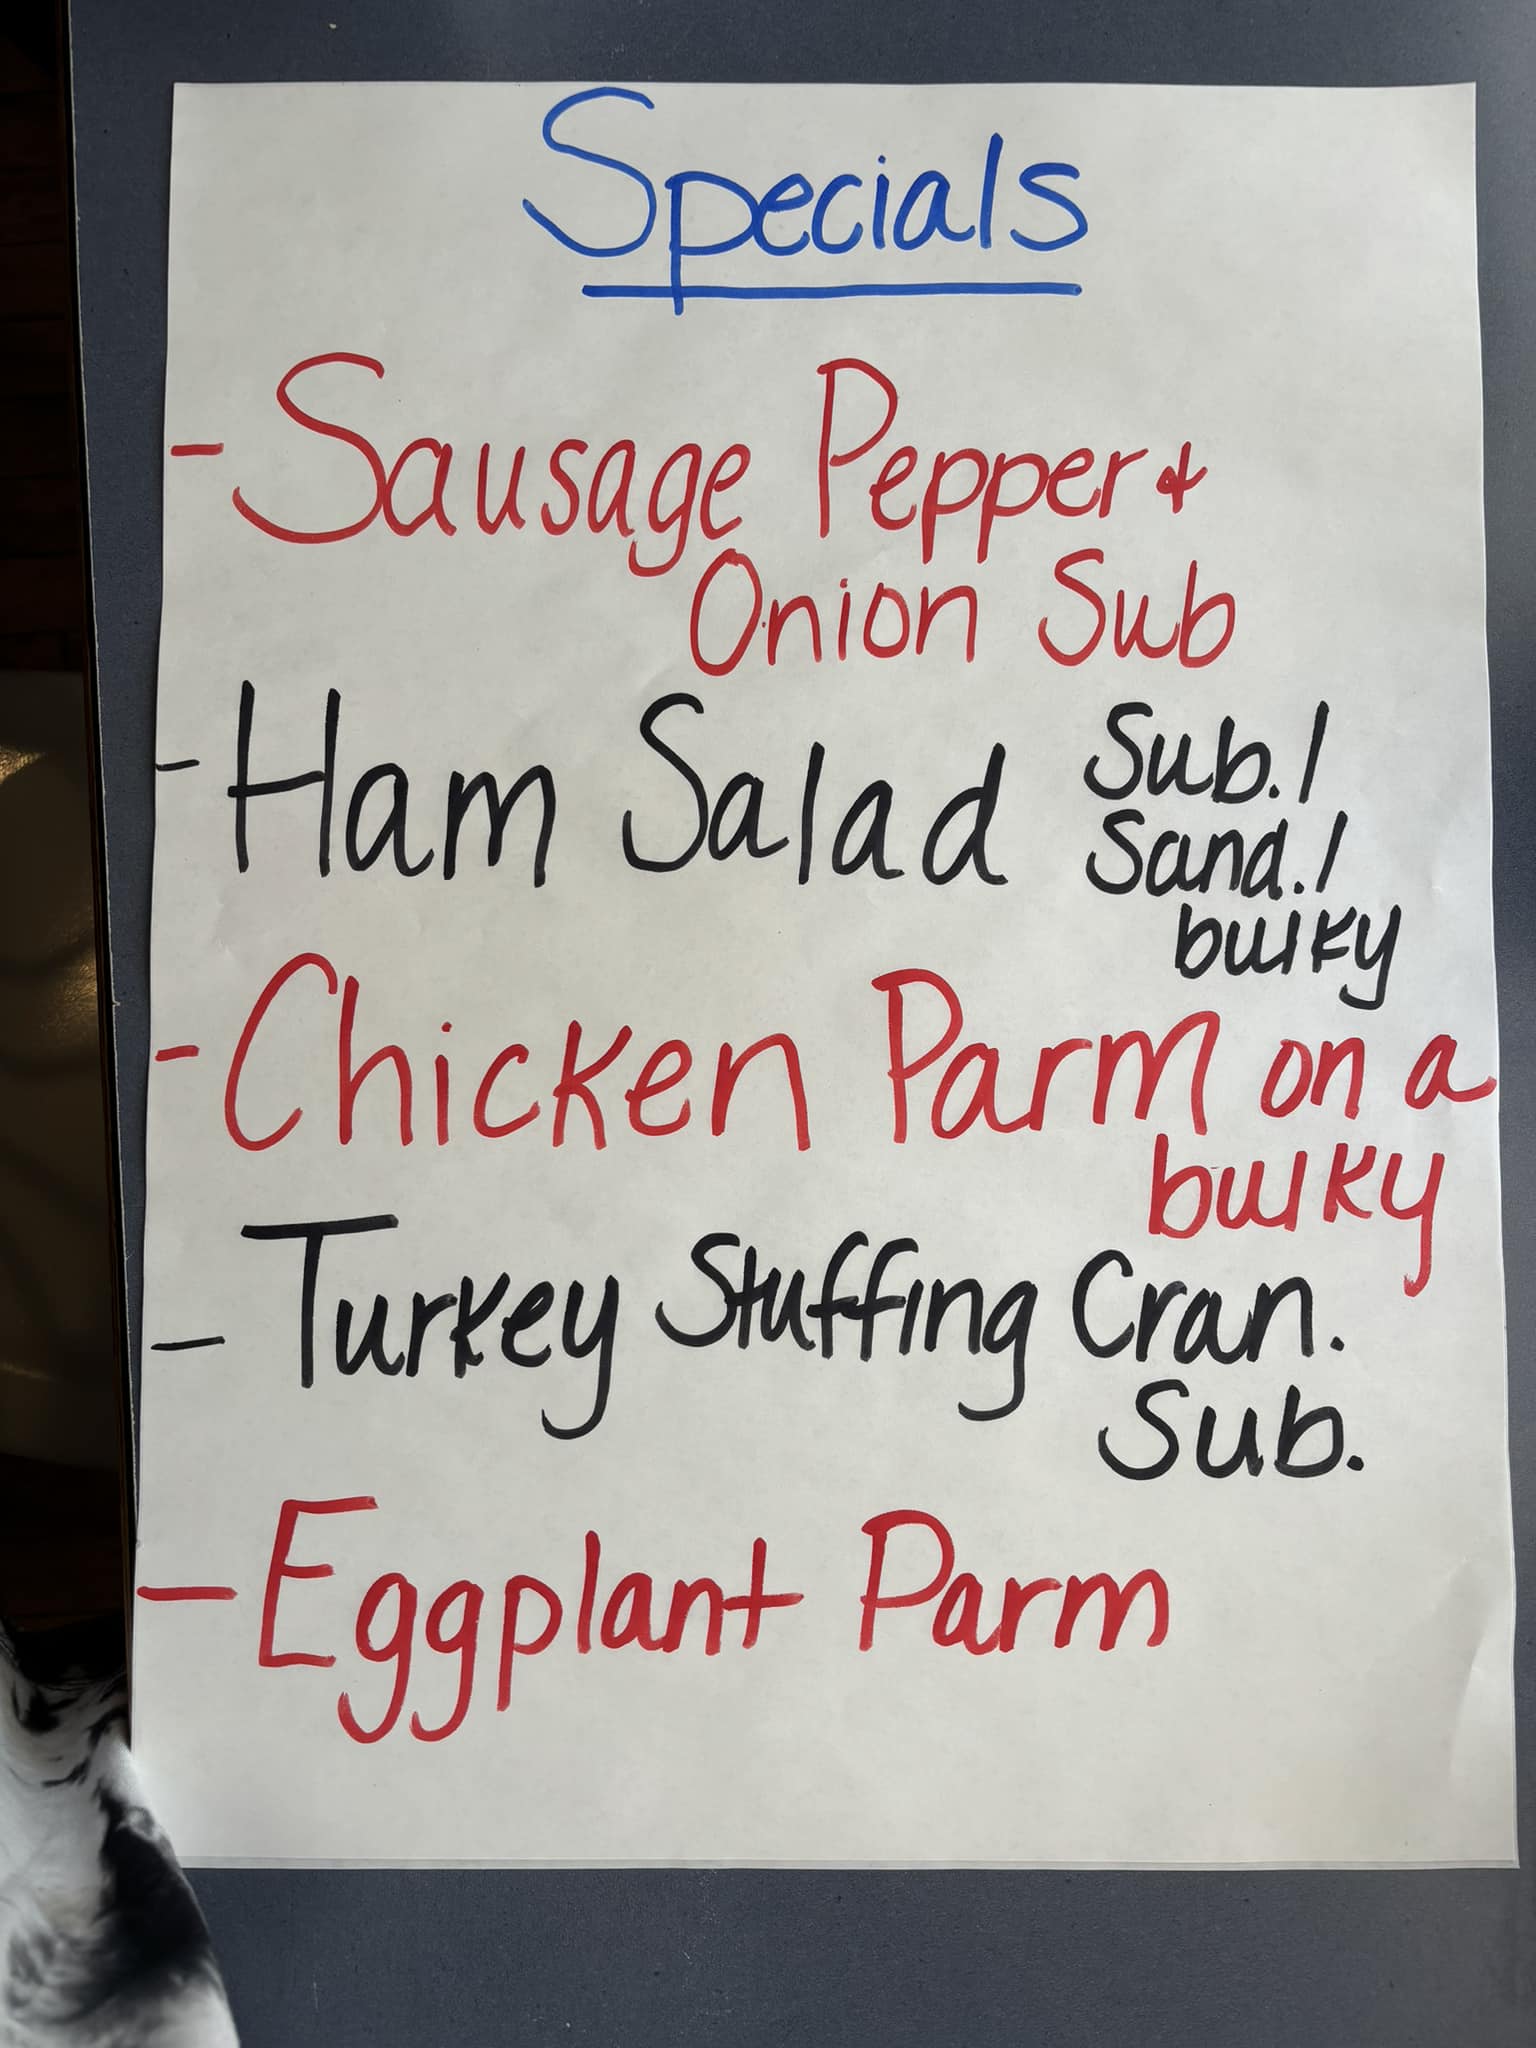 Specials
- Sausage Pepper &
Onion Sub
- Ham Salad Sub. /
Sand. /
bulky
- Chicken Parm on a
bulky
- Turkey Stuffing Cran.
Sub.
- Eggplant Parm